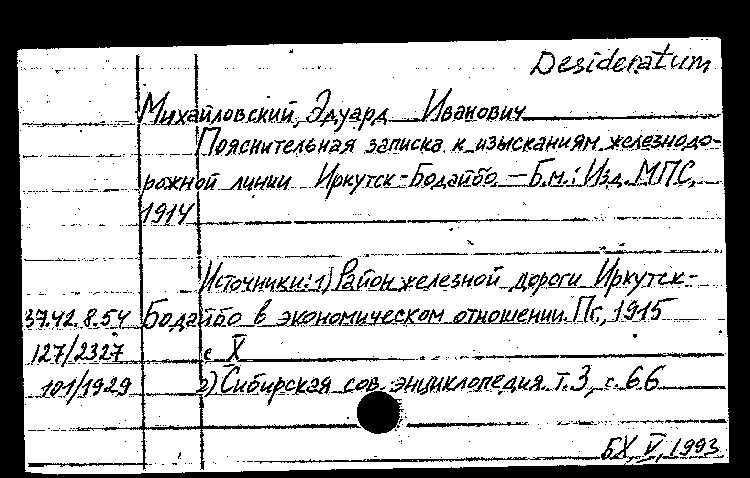 Desideratum
Михайловский, Эдуард Иванович
Пояснительная записка к изысканиям железнодо-
рожной линии Иркутск-Бодайбо. — Б.м.: Изд. МПС,
1914
Источники: 1) Район железной дороги Иркутск-
37.42.8.54 Бодайбо в экономическом отношении. Пг., 1915
127/2327 с X
101/1929 2) Сибирская сов. энциклопедия. т.3, с.66
БХ, V, 1993